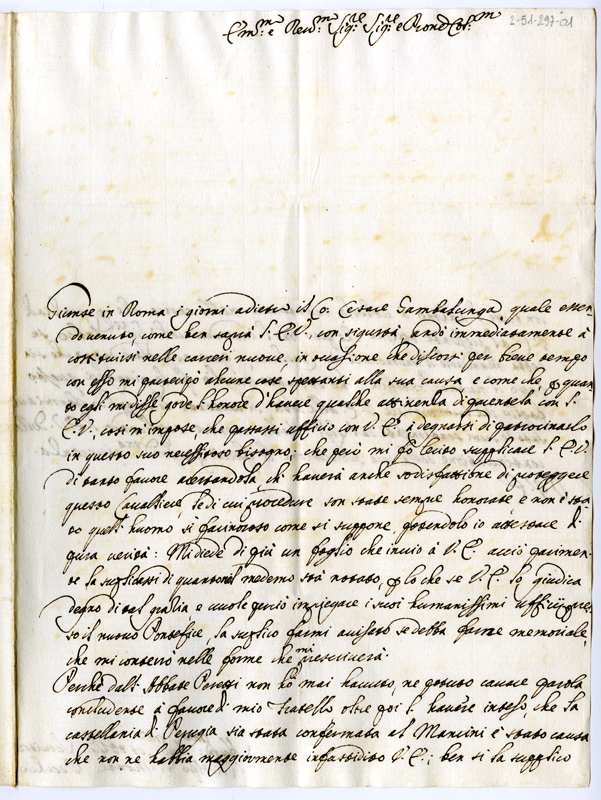 2-51-297-01
Em.mo e Rev.mo Sig.re Sig.re e Pron Col.mo
Giunse in Roma i giorni adietro il Co: Cesare Gambalunga, quale essen-
do venuto, come ben saprà l'E.V., con sigurtà, andò immediatamente à
costituirsi nelle carceri nuove, in occasione che discorsi per breve tempo
con esso mi partecipò alcune cose spettanti alla sua causa e come che, p quan-
to egli mi disse gode l'honore d'havere qualche attinenza di parentela con l'
E.V., così m'impose, che passassi ufficio con V.E. à degnarsi di patrocinarlo
in questo suo necessitoso bisogno; che però mi fo lecito supplicare l'E.V.
di tanto favore accertandola che haverà anche sodisfattione di proteggere
questo Cavalliere le di cui procedure son state sempre honorate, e non è sta-
to quell'huomo sì facinoroso come si suppone, potendolo io attestare di
pura verità: Mi diede di più un foglio che invio à V.E. acciò parimen-
te la suplicassi di quanto nel medemo stà notato, p lo che se V.E. lo giudica
degno di tal grazia e vuole perciò impiegare i suoi humanissimi ufficij pres-
so il nuovo Pontefice, la suplico farmi avisato se debba farne memoriale,
che mi conterrò nelle forme che mi prescriverà.
Perche dall'Abbate Peretti non hò mai havuto, ne potuto cavare parola
concludente à favore di mio fratello oltre poi l'havere inteso, che la
castellania di Perugia sia stata confermata al Mancini è stato causa
che non ne habbia maggiormente infastidito V.E.; ben sì la supplico